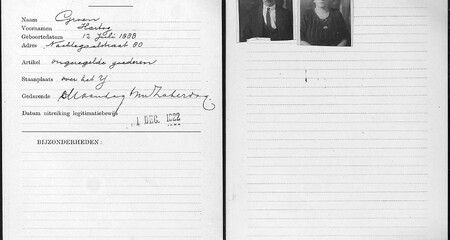 Naam Groen
Voornamen Hartog
Geboortedatum 12 Juli 1888
Adres 80
Artikel ongeregelde goederen
Staanplaats over het Y
Gedurende Maandag t/m Zaterdag.
Datum uitreiking legitimatiebewijs 1 DEC. 1922
BIJZONDERHEDEN: